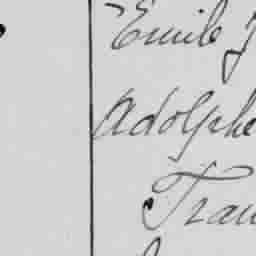 Emile J
Adolphe
Fran